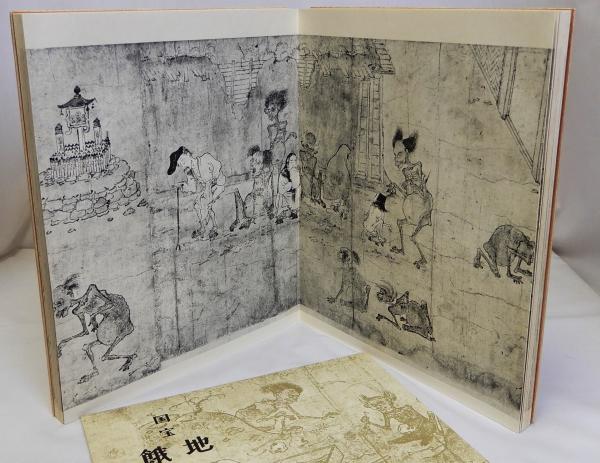 国宝
地
餓